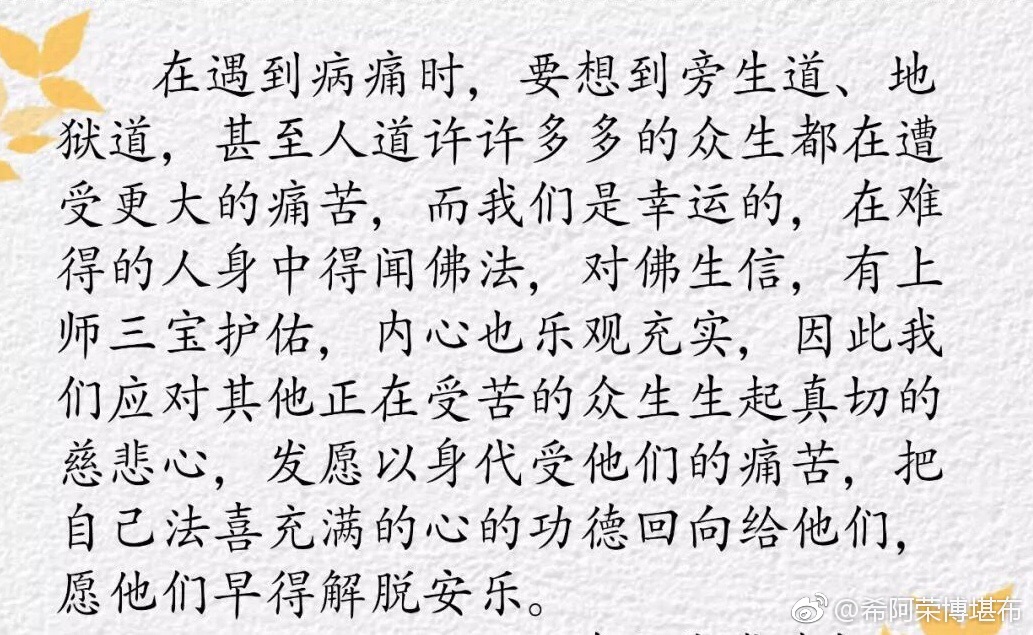 在遇到病痛时，要想到旁生道、地
狱道，甚至人道许许多多的众生都在遭
受更大的痛苦，而我们是幸运的，在难
得的人身中得闻佛法，对佛生信，有上
师三宝护佑，内心也乐观充实，因此我
们应对其他正在受苦的众生生起真切的
慈悲心，发愿以身代受他们的痛苦，把
自己法喜充满的心的功德回向给他们，
愿他们早得解脱安乐。
@希阿荣博堪布